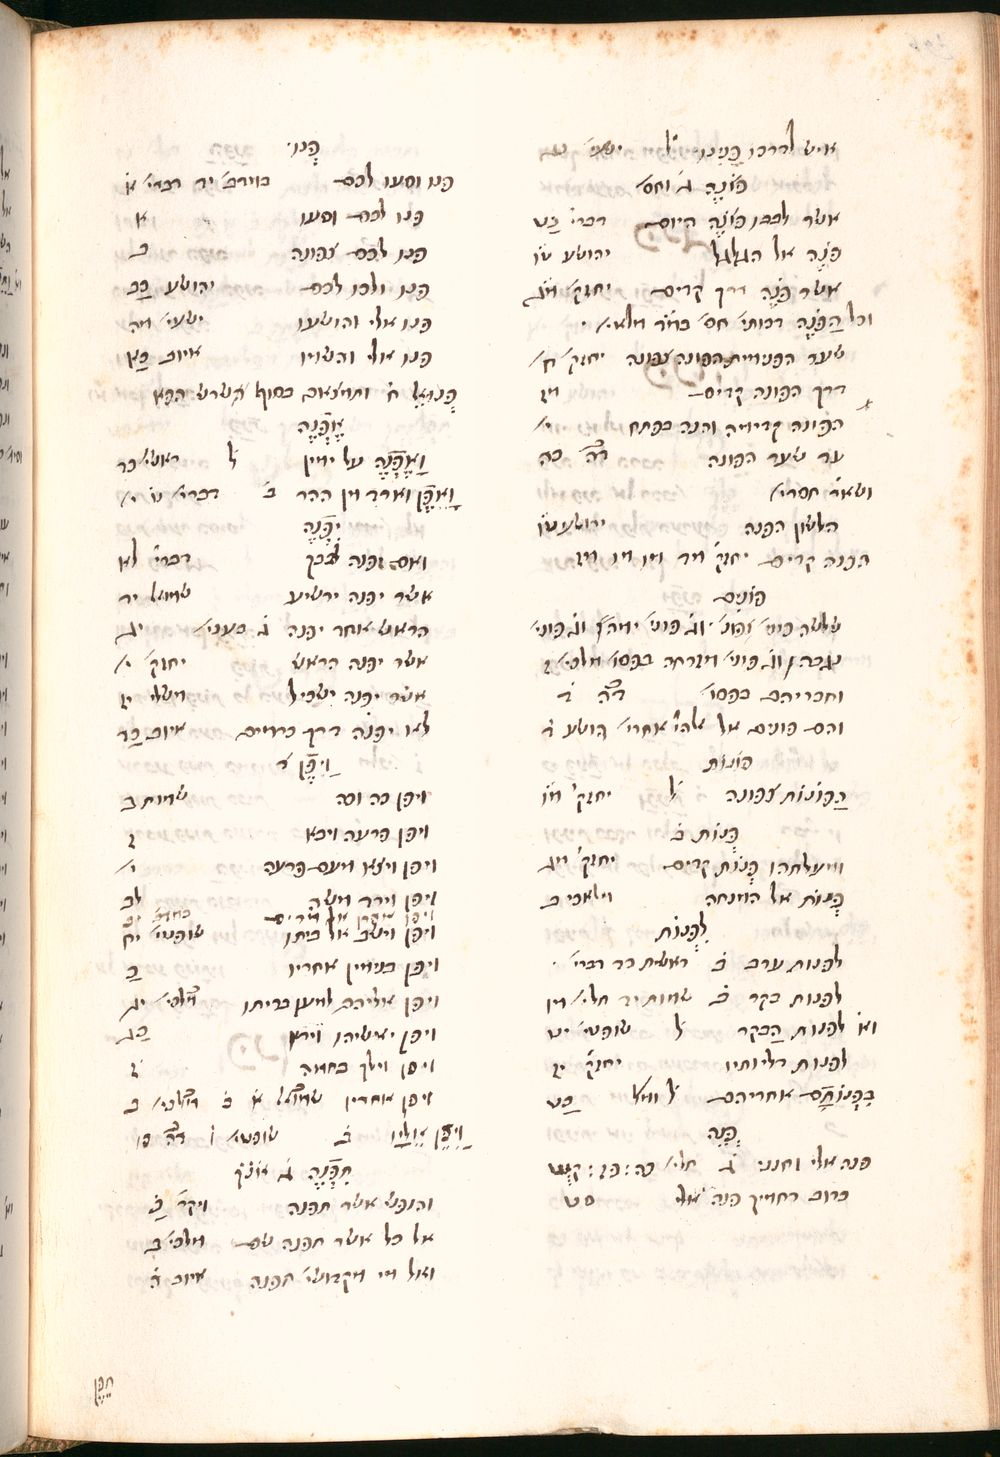 איש לדרכו פָּנִינוּ ל' ישעי' נג
פּוֹנֶה ג' וחס'
אשר לבבו פּוֹנֶה היום דברי' כט
פֹּנֶה אל הגלגל יהושע טו
אשר פֹּנֶה דרך קדים יחזק' מג
וכל הַפֹּנֶה דכותי' חס' במ'ד מלא' י'
שער הפנימית הפונה צפונה יחזק' ח'
דרך הפונה קדים מז
הפונה קדימה והנה בפתח י'
עד שער הפונה כה
ושאר' חסרי'
הלשון הפנה יהושע טו
הפנה קדים יחזק'
פּוֹנִים
שלשה פוני' צפונ' וג' פוני' ימה וג' פוני'
נגבה וג' פוני' מזרחה בפסו' מלכי' ז
וחבריהם בפסו' ד'ה' ד
והם פונים אל אלהי' אחרי' הושע ג
פּוֹנוֹת
הַפּוֹנוֹת צפונה ל' יחזק' מו
פְּנוֹת ב'
ומעלתהו פְּנוֹת קדים יחזק' מג
פְּנוֹת אל המנחה מלאכי ב
לִפְנוֹת
לפנות ערב ב' ראשית כד דברי'
לפנות בקר ב' שמות יד תלי' מו
וא' לפנות הַבקר ל' שופטי' יט
לפנות דליותיו יחזק' יז
בִּפְנוֹתָם אחריהם ל' ומל' כט
פְּנֵה
פנה אלי וחנני ג' תלי' כה: פו: קיט
כרוב רחמיך פנה אלי סט
פְּנוּ
פנו וסעו לכם במדב' יד דברי' א
פנו לכם וסעו א
פנו לכם צפונה ב
פנו ולכו לכם יהושע כב
פנו אלי והושעו ישעי' מה
פנו אלי והשמו איוב כא
פְּנוּאֵל ח' ותמצאם בסוף השרש הבא
אֶפְנֶה
וְאֶפְנֶה על ימין ל' ראשי' כד
וָאֵפֶן וארד מן ההר ב' דברי' ט' י'
יִפְנֶה
ואם יפנה לבבך דברי' ל
אשר יפנה ירשיע שמואל יד
הראש אחר יפנה ג' בעני' יג
אשר יפנה הראש יחזק' י'
אשר יפנה ישכיל משלי יז
לא יפנה דרך כרמים איוב כד
וַיִּפֶן ד'
ויפן כה וכה שמות ב
ויפן פרעה ויבא ז
ויפן ויצא מעם פרעה י'
ויפן וירד משה לב
ויפן וישב אל ביתו שופטי' יח
ויפן בנימין אחריו כ
ויפן אליהם למען בריתו מלכי' יג
ויפן יאשיהו וירא כג
ויפן וילך בחמה ז
ויפן אחריו שמואל א' ב' מלכי' ב
וַיִּפֶן אֵלָיו ב' שופטי' ו
תִּפְנֶה ג'
והנפש אשר תפנה ויקר' כ
אל כל אשר תפנה שם מלכי' ב
ואל מי מקדושי' תפנה איוב ה
תֵּפֶן